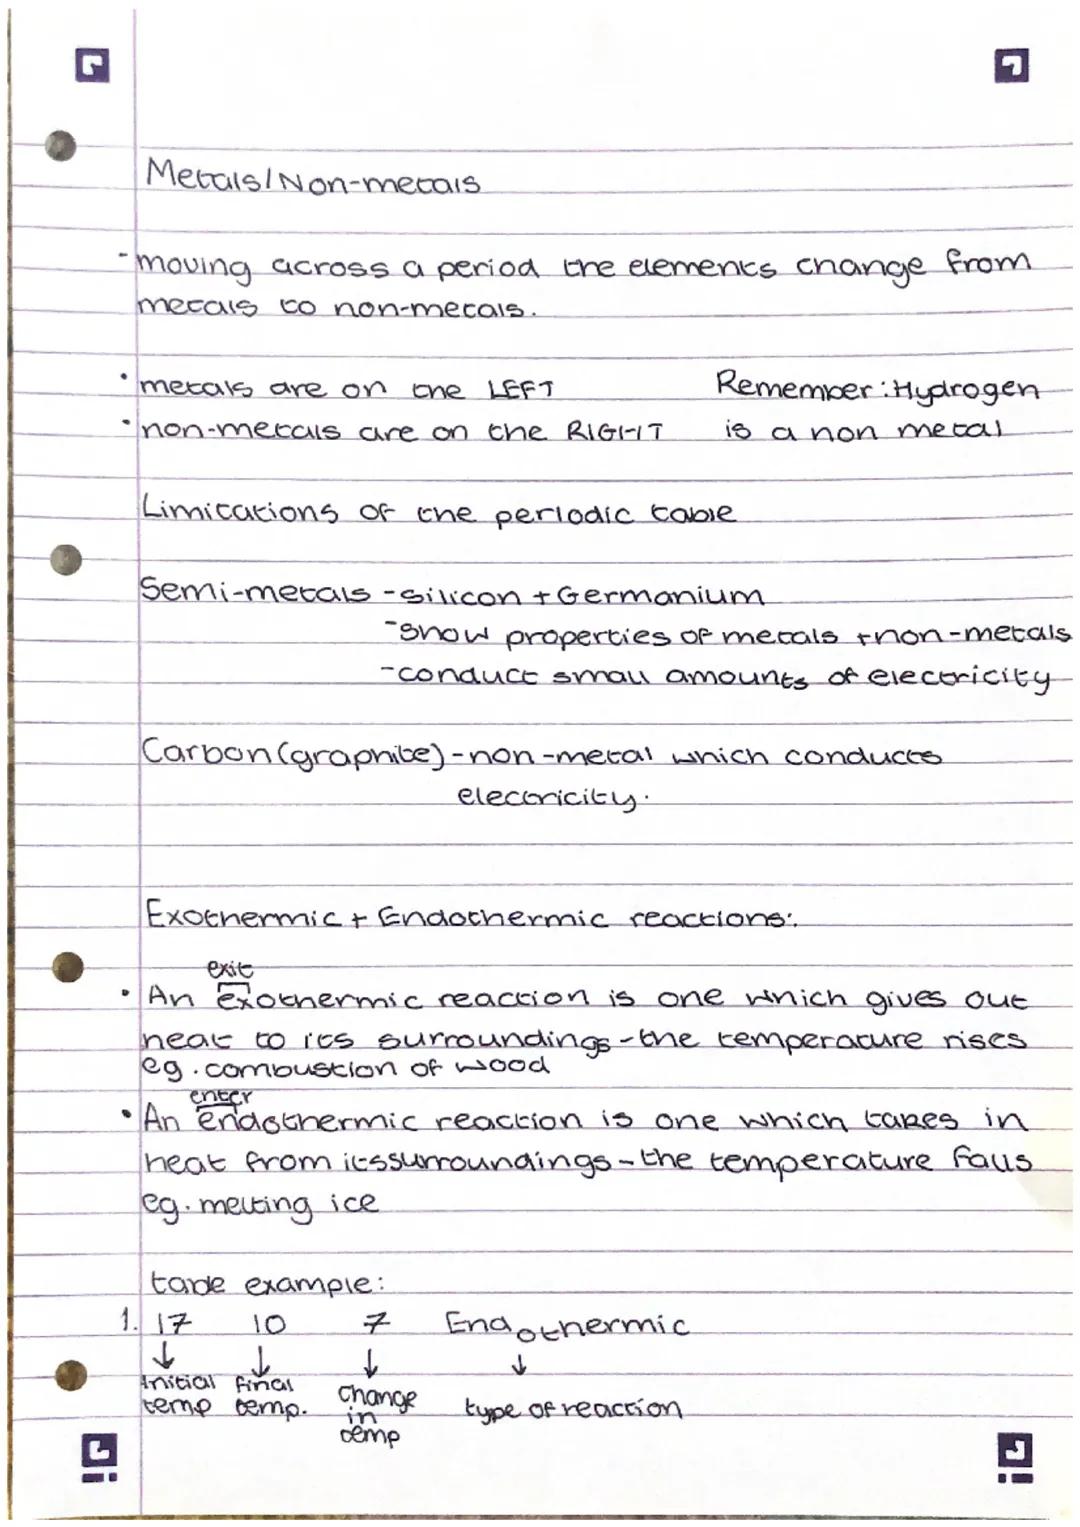 Metals/Non-metals
- moving across a period the elements change from
metals to non-metals.
• metals are on the LEFT
• non-metals are on the RIGHT
Remember: Hydrogen
is a non metal
Limitations of the periodic table
Semi-metals - silicon + Germanium
- show properties of metals + non-metals
- conduct small amounts of electricity
Carbon (graphite) - non-metal which conducts
electricity.
Exothermic + Endothermic reactions:
exit
• An exothermic reaction is one which gives out
heat to its surroundings - the temperature rises
eg. combustion of wood
enter
• An endothermic reaction is one which takes in
heat from its surroundings - the temperature falls
eg. melting ice
table example:
1. 17 10 7 Endothermic
↓ ↓ ↓ ↓
Initial temp
final temp.
change in temp
type of reaction